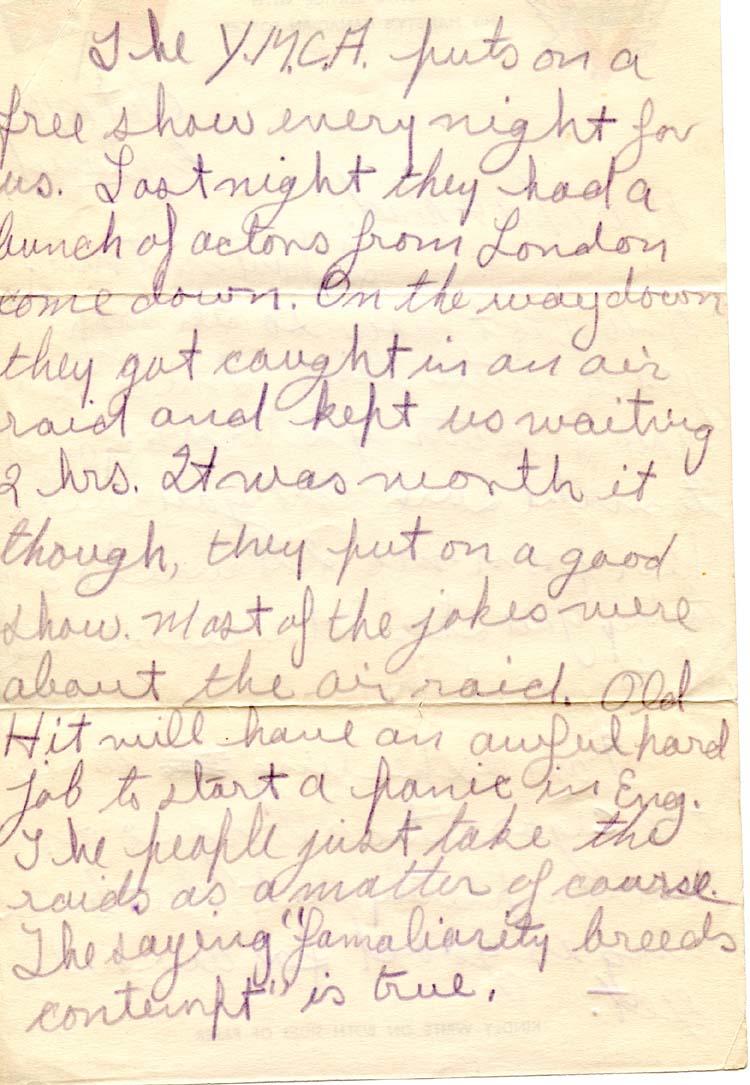 The Y.M.C.A. puts on a
free show every night for
us. Last night they had a
bunch of actors from London
come down. On the way down
they got caught in an air
raid and kept us waiting
2 hrs. It was worth it
though, they put on a good
show. Most of the jokes were
about the air raid. Old
Hit will have an awful hard
job to start a panic in Eng.
The people just take the
raids as a matter of course.
The saying "famaliarity breeds
contempt" is true.